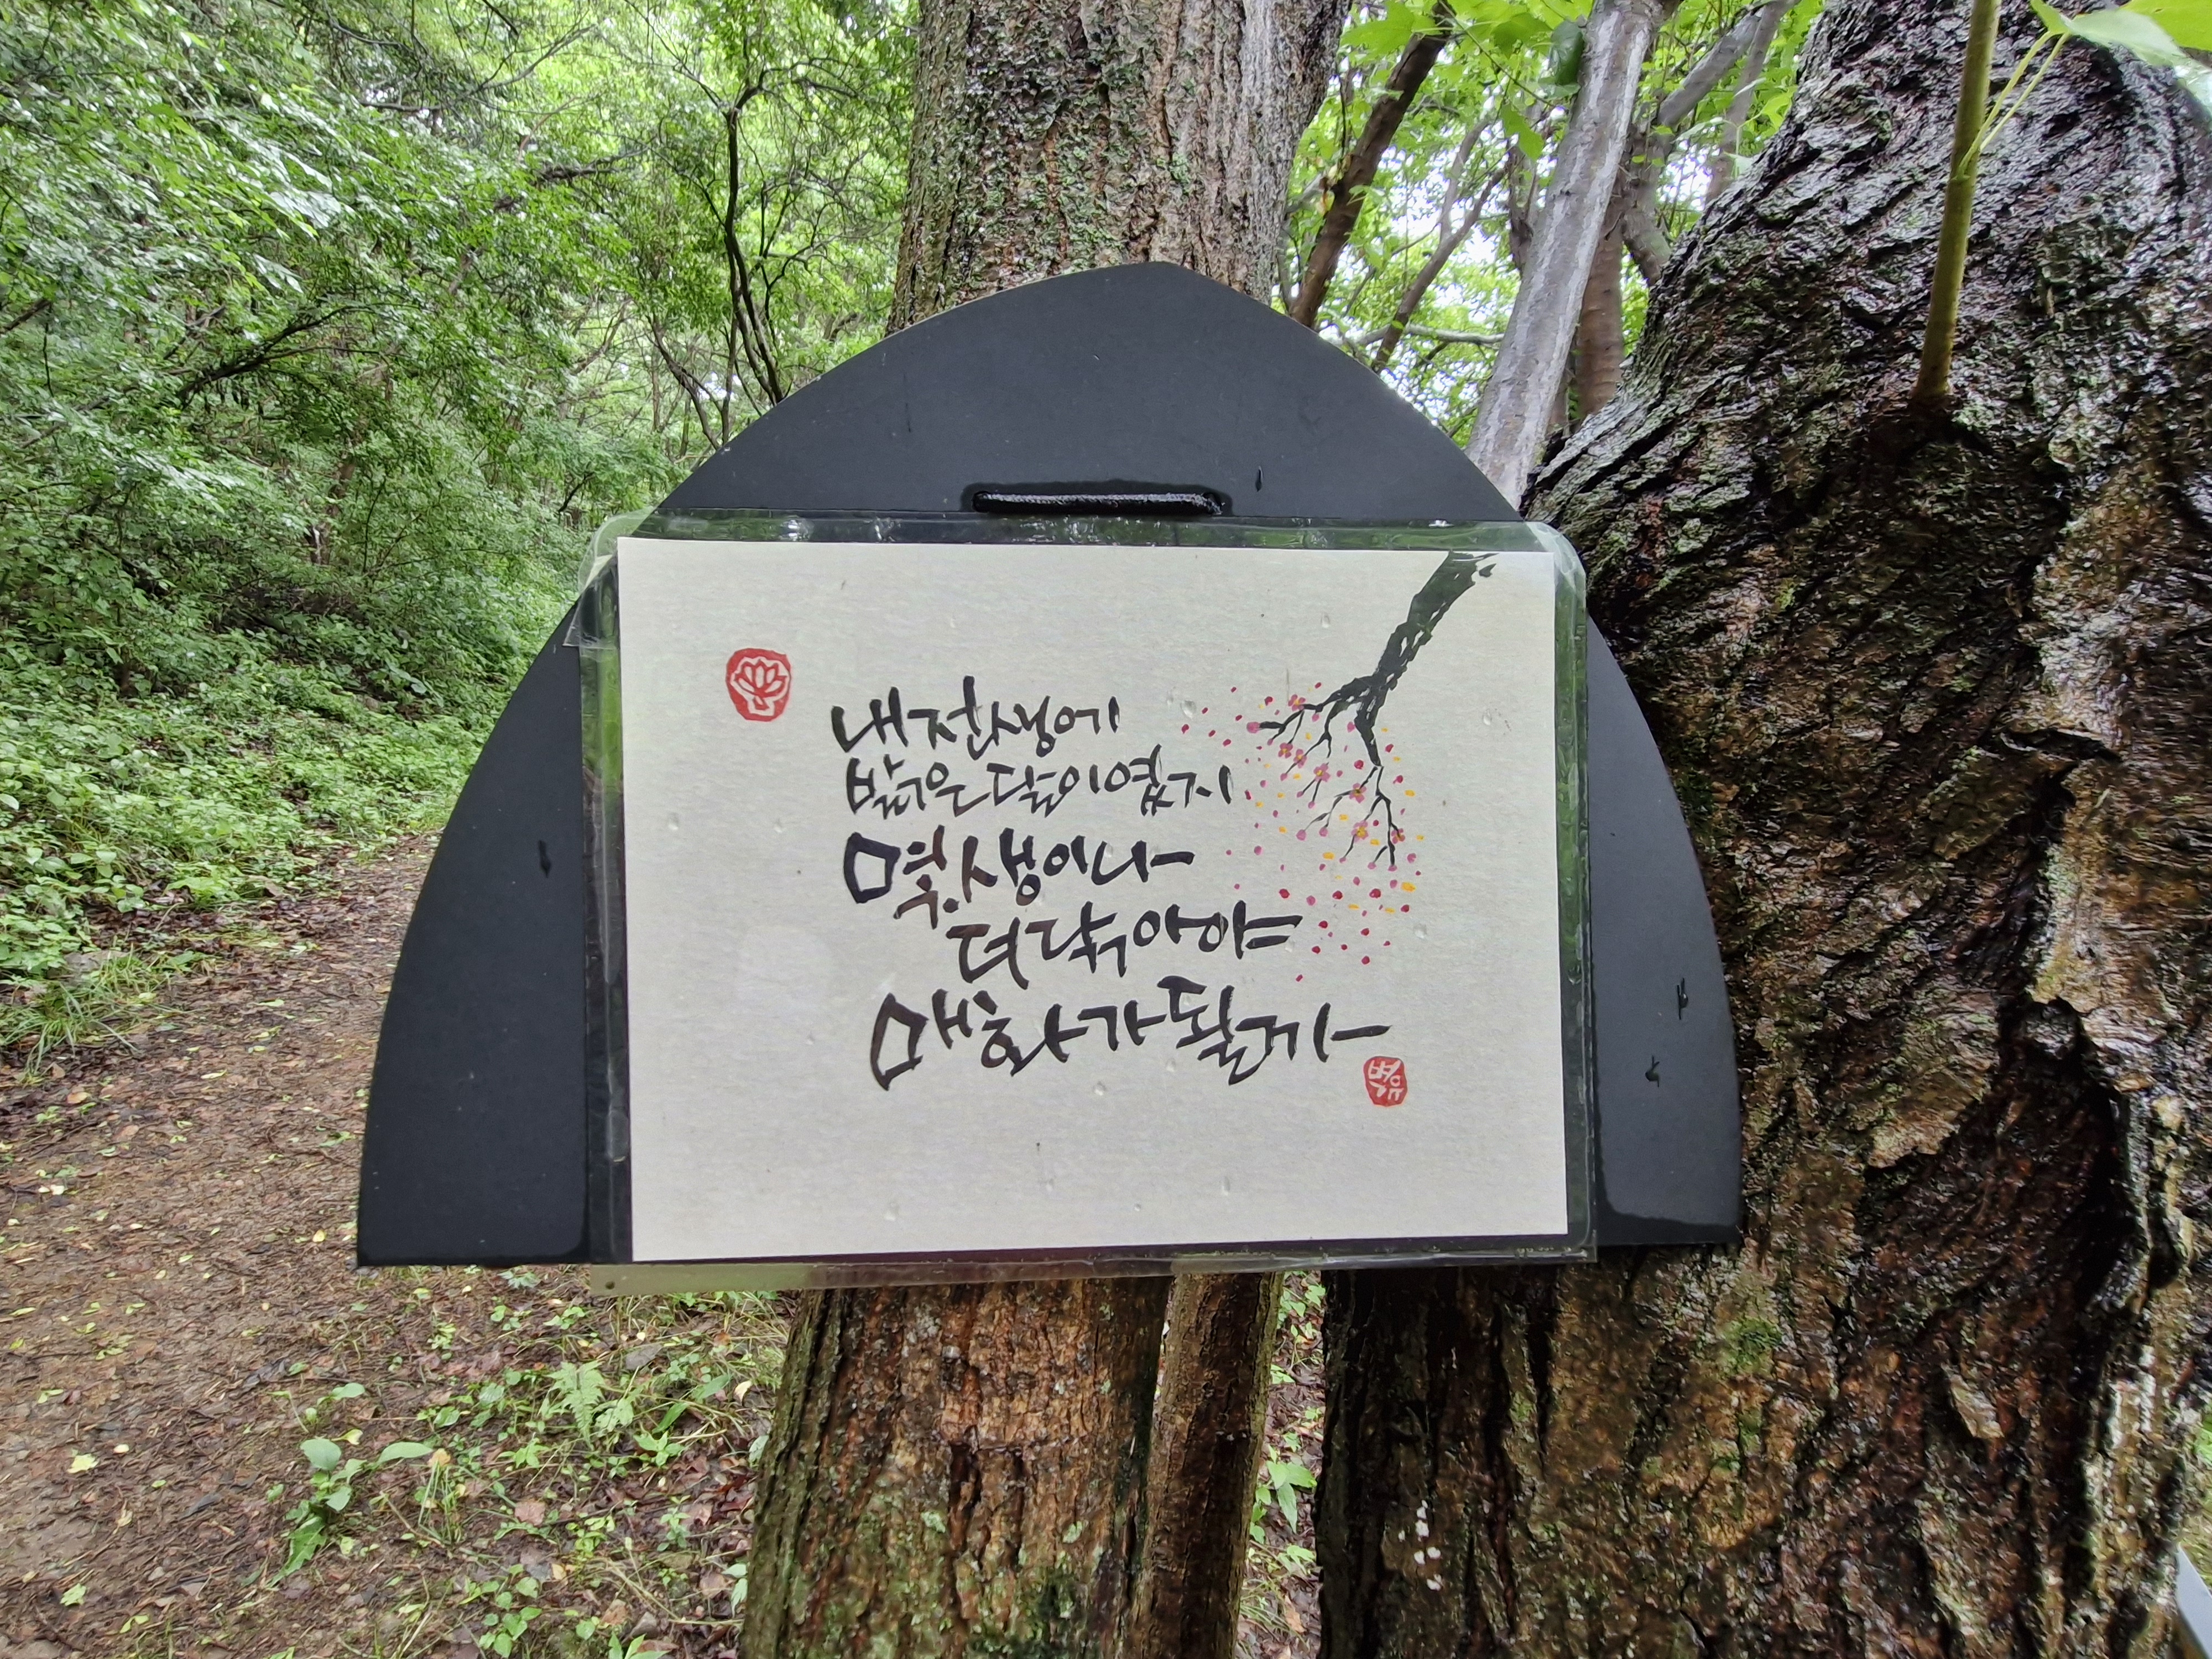 내 전생에
밝은 달이였지
몇 생이나
더 닦아야
매화가 될까